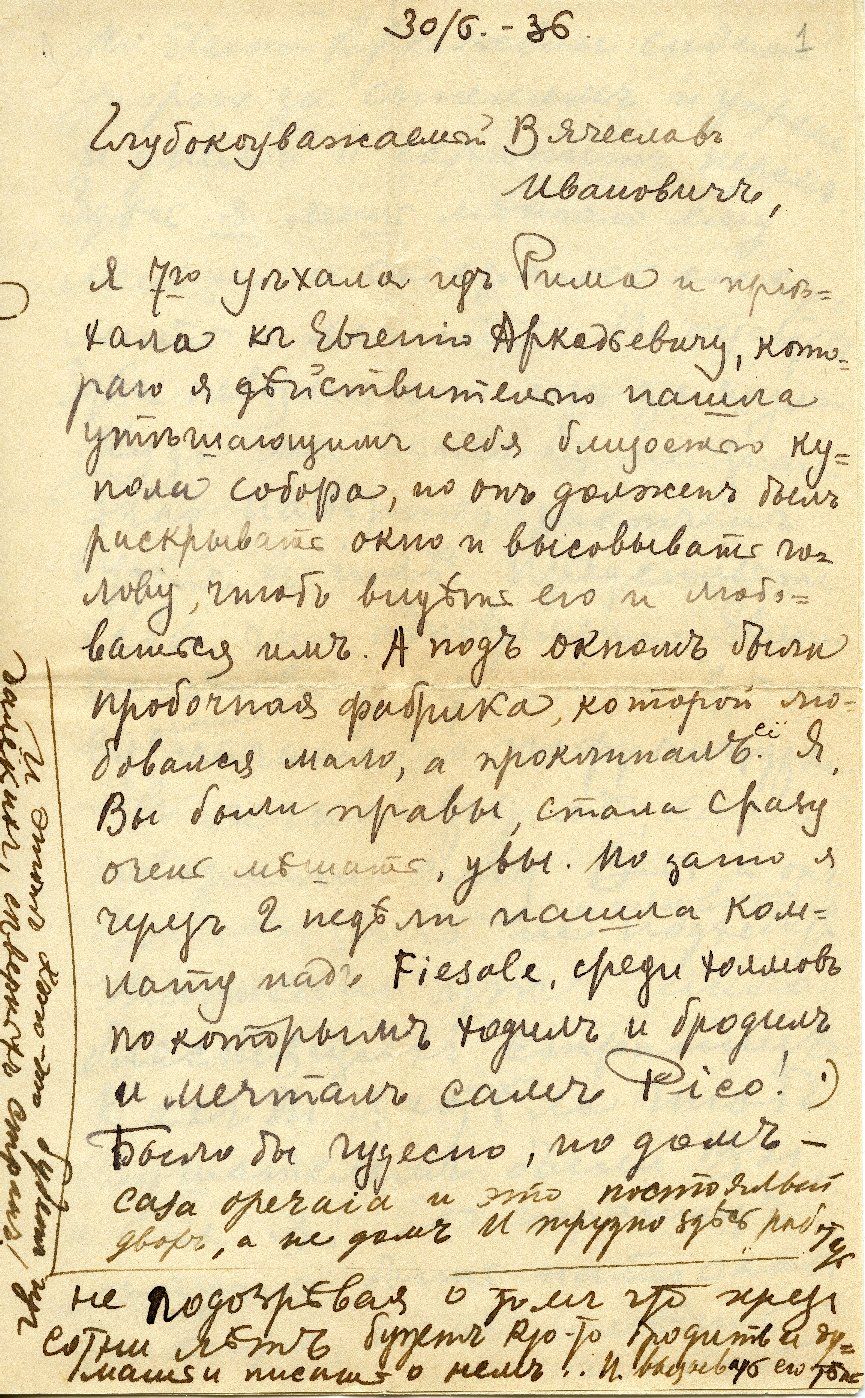 30/6.-36.
1
Глубокоуважаемый Вячеславъ
Ивановичъ,
я 7го уѣхала изъ Рима и пріѣ=
хала къ Евгенію Аркадьевичу, кото=
раго я дѣйствительно нашла
утѣшающимъ себя близостью ку=
пола собора, но онъ долженъ былъ
раскрывать окно и высовывать го=
лову, чтобъ видѣть его и любо=
ваться имъ. А подъ окномъ была
пробочная фабрика, которой лю=
бовался мало, а проклиналъ ее. Я,
Вы были правы, стала сразу
очень мѣшать, увы. Но зато я
черезъ 2 недѣли нашла ком=
нату надъ Fiesole, среди холмовъ
по которымъ ходилъ и бродилъ
и мечталъ самъ Pico! ·)
Было бы чудесно, но домъ —
casa operaia и это постоялый
дворъ, а не домъ И трудно здѣсь
не подозрѣвая о томъ что чрезъ
сотни лѣтъ будетъ кто-то бродить и ду=
мать и писать о немъ .. И вызывать его
И этотъ кто-то будетъ изъ
далекихъ, сѣверныхъ странъ!